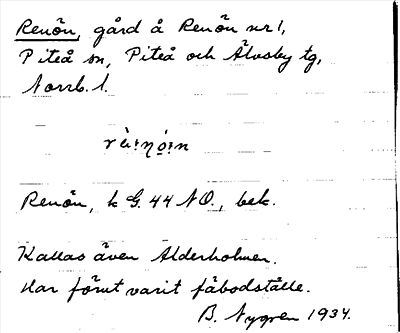 Renön, gård å Renön nr 1,
Piteå sn, Piteå och Älvsby tg,
Norrb. l.
Renön, k G. 44 NO., bek.
Kallas även Alderholmen.
Har förut varit fäbodställe.
B. Nygren 1934.